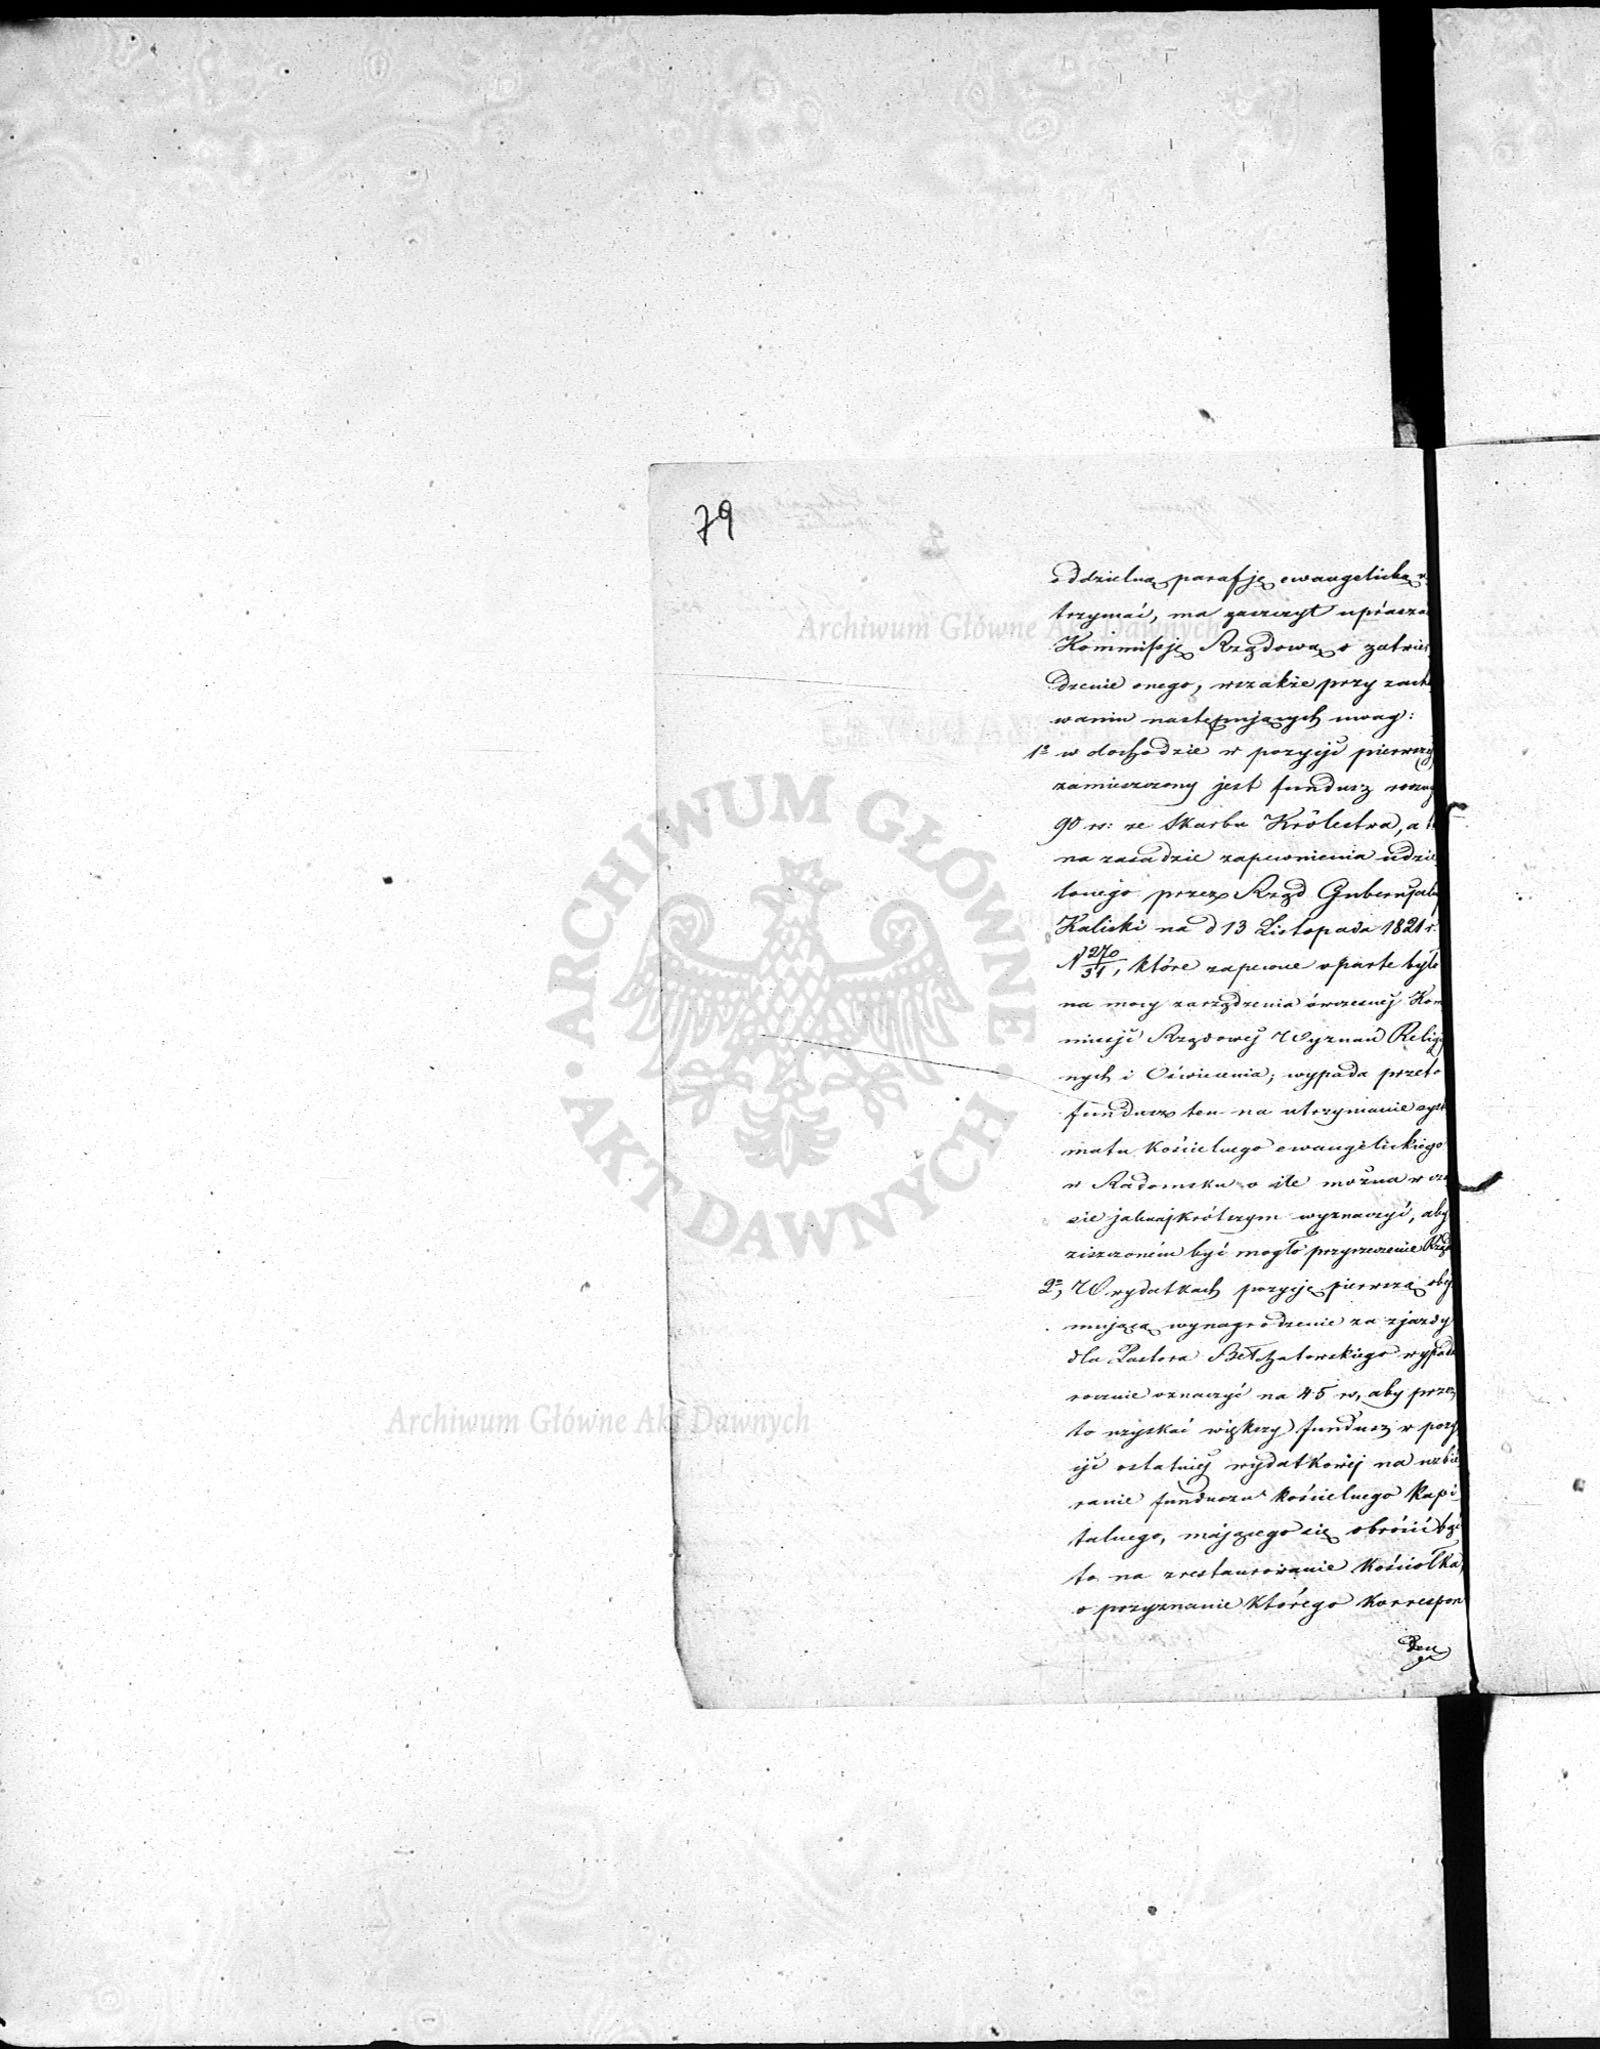 79
oddzielną parafję ewangelicką u
trzymać, ma zaszczyt upraszać
Kommissję Rządową o zatwier
dzenie onego, wszakże przy zacho
waniu następujących uwag:
1º w dochodzie w pozycji pierwszej
zamieszczony jest fundusz roczny
90 rs: ze Skarbu Królestwa, a to
na zasadzie zapewnienia udzie
lonego przez Rząd Gubernjalny
Kaliski na d 13 Listopada 1821 r.
N 270/31, które zapewne oparte było
na mocy zarządzenia ówczesnej Kom
missji Rządowej Wyznań Religij
nych i Oświecenia; wypada przeto
fundusz ten na utrzymanie syste
matu kościelnego ewangelickiego
w Radomsku o ile można w cza
sie jaknajkrótszym wyznaczyć, aby
ziszczonem być mogło przyrzeczenie Rządu
2º, W wydatkach pozycję pierwszą obej
mującą wynagrodzenie za zjazdy
dla Pastora Bełchatowskiego wypada
rocznie oznaczyć na 45 rs, aby przez
to uzyskać większy fundusz w pozy
cji ostatniej wydatkowej na uzbie
ranie funduszu kościelnego kapi
talnego, mającego się obrócić bądź
to na zrestaurowanie kościołka,
o przyznanie którego korrespon
den
Archiwum Główne Akt Dawnych
ARCHIWUM GŁÓWNE · AKT DAWNYCH ·
Archiwum Główne Akt Dawnych